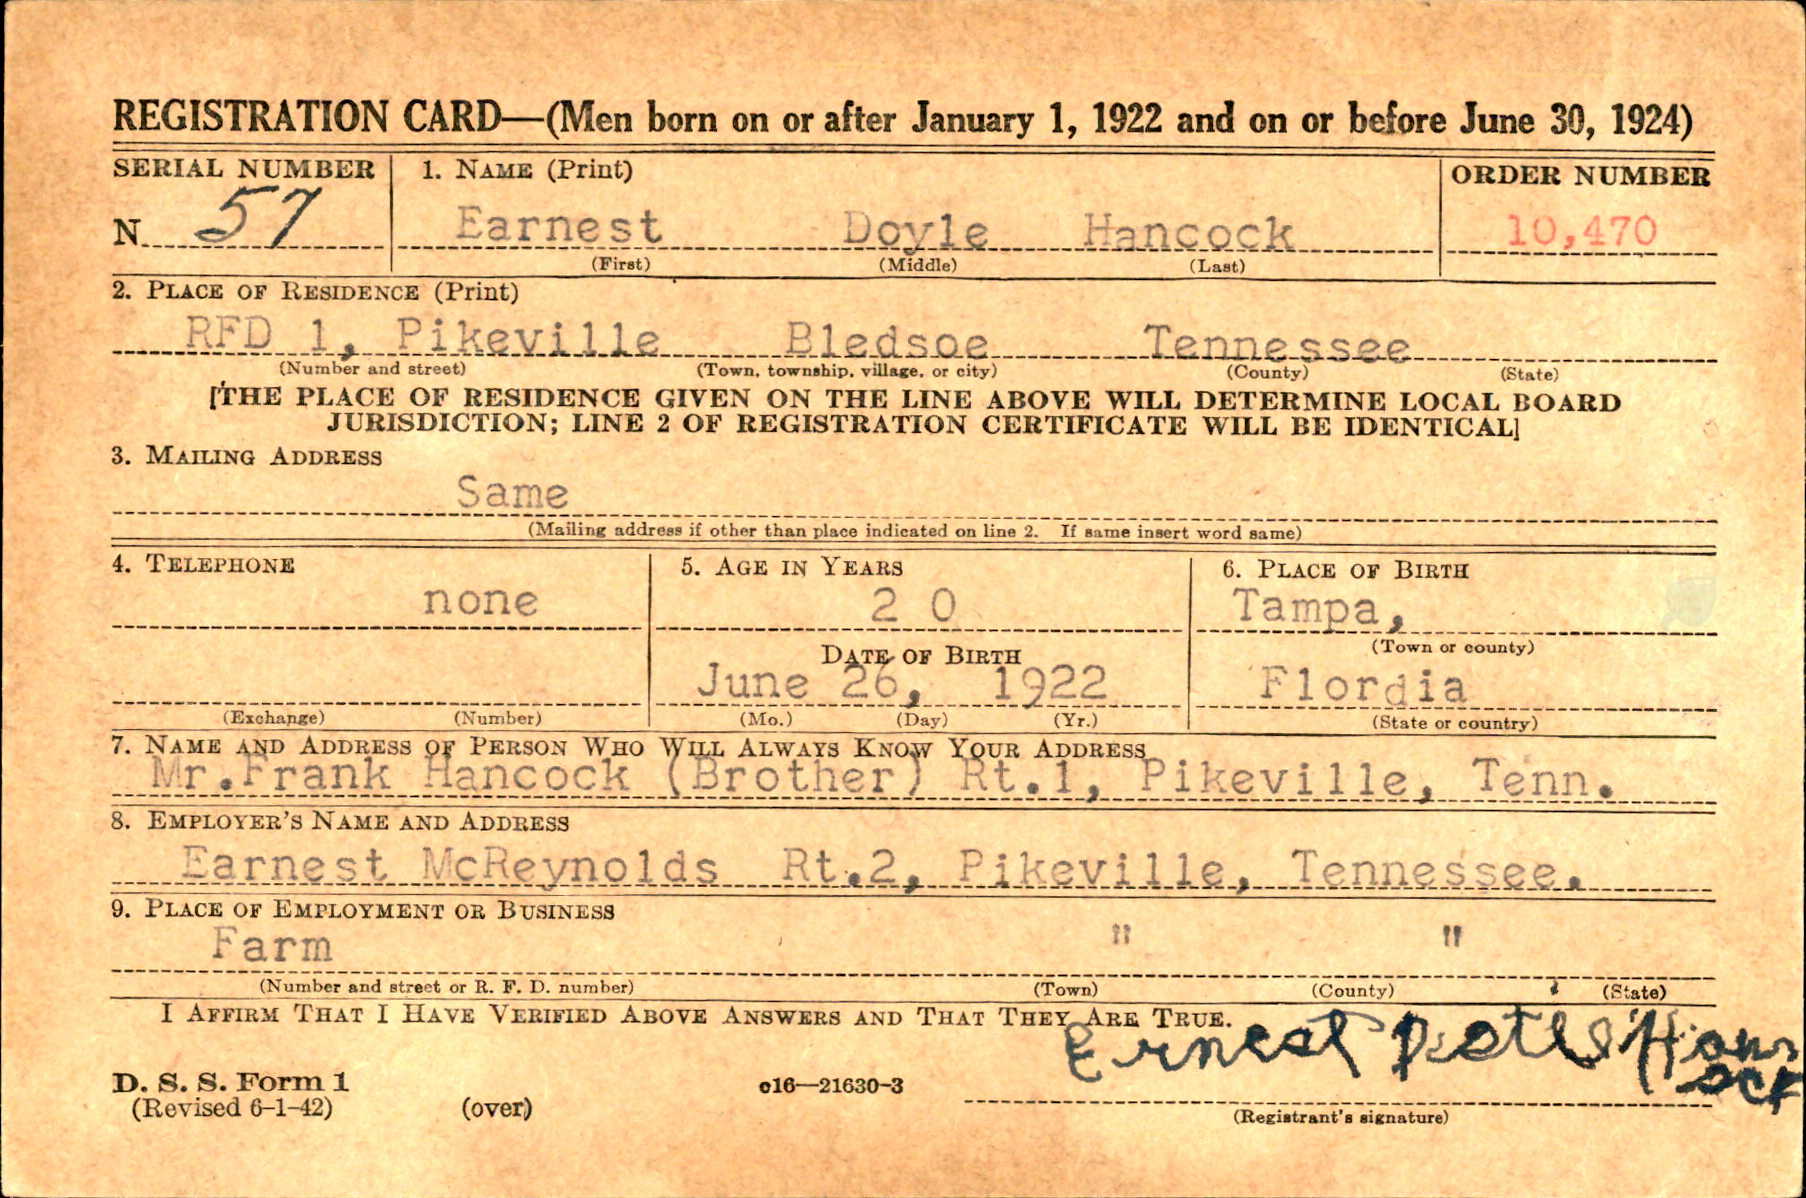 REGISTRATION CARD—(Men born on or after January 1, 1922 and on or before June 30, 1924)
SERIAL NUMBER 1. NAME (Print) ORDER NUMBER
N 57 Earnest Doyle Hancock 10,470
(First) (Middle) (Last)
2. PLACE OF RESIDENCE (Print)
RFD 1, Pikeville Bledsoe Tennessee
(Number and street) (Town, township, village, or city) (County) (State)
[THE PLACE OF RESIDENCE GIVEN ON THE LINE ABOVE WILL DETERMINE LOCAL BOARD
JURISDICTION; LINE 2 OF REGISTRATION CERTIFICATE WILL BE IDENTICAL]
3. MAILING ADDRESS
Same
(Mailing address if other than place indicated on line 2. If same insert word same)
4. TELEPHONE 5. AGE IN YEARS 6. PLACE OF BIRTH
none 2 0 Tampa,
(Town or county)
DATE OF BIRTH
June 26, 1922 Flordia
(Exchange) (Number) (Mo.) (Day) (Yr.) (State or country)
7. NAME AND ADDRESS OF PERSON WHO WILL ALWAYS KNOW YOUR ADDRESS
Mr.Frank Hancock (Brother) Rt.1, Pikeville, Tenn.
8. EMPLOYER'S NAME AND ADDRESS
Earnest McReynolds Rt.2, Pikeville, Tennessee.
9. PLACE OF EMPLOYMENT OR BUSINESS
Farm " "
(Number and street or R. F. D. number) (Town) (County) (State)
I AFFIRM THAT I HAVE VERIFIED ABOVE ANSWERS AND THAT THEY ARE TRUE.
Ernest Han
ock
D. S. S. Form 1 c16—21630-3
(Revised 6-1-42) (over) (Registrant's signature)